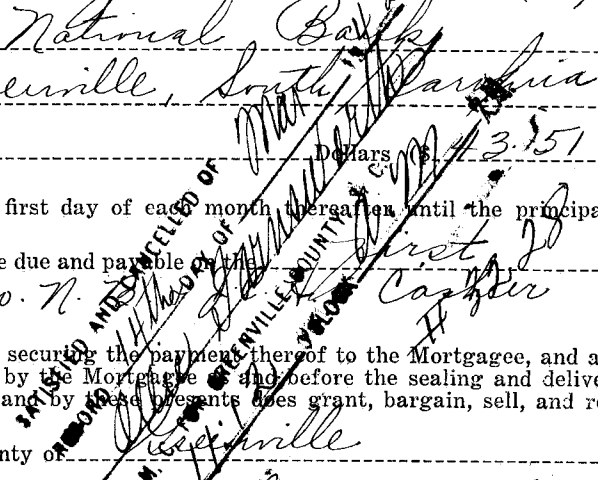 National Bank
eenville, South Carolina
Dollars ($ 43.51
first day of each month thereafter until the principa
First
e due and payable on the
o. N. Cashier
securing the payment thereof to the Mortgagee, and a
by the Mortgagee at and before the sealing and delive
and by these presents does grant, bargain, sell, and re
nty of Greenville
SATISFIED AND CANCELLED OF
RECORD 14th DAY OF Mar
Ollie Farnsworth
R. M. C. FOR GREENVILLE COUNTY, S. C.
O'CLOCK A M